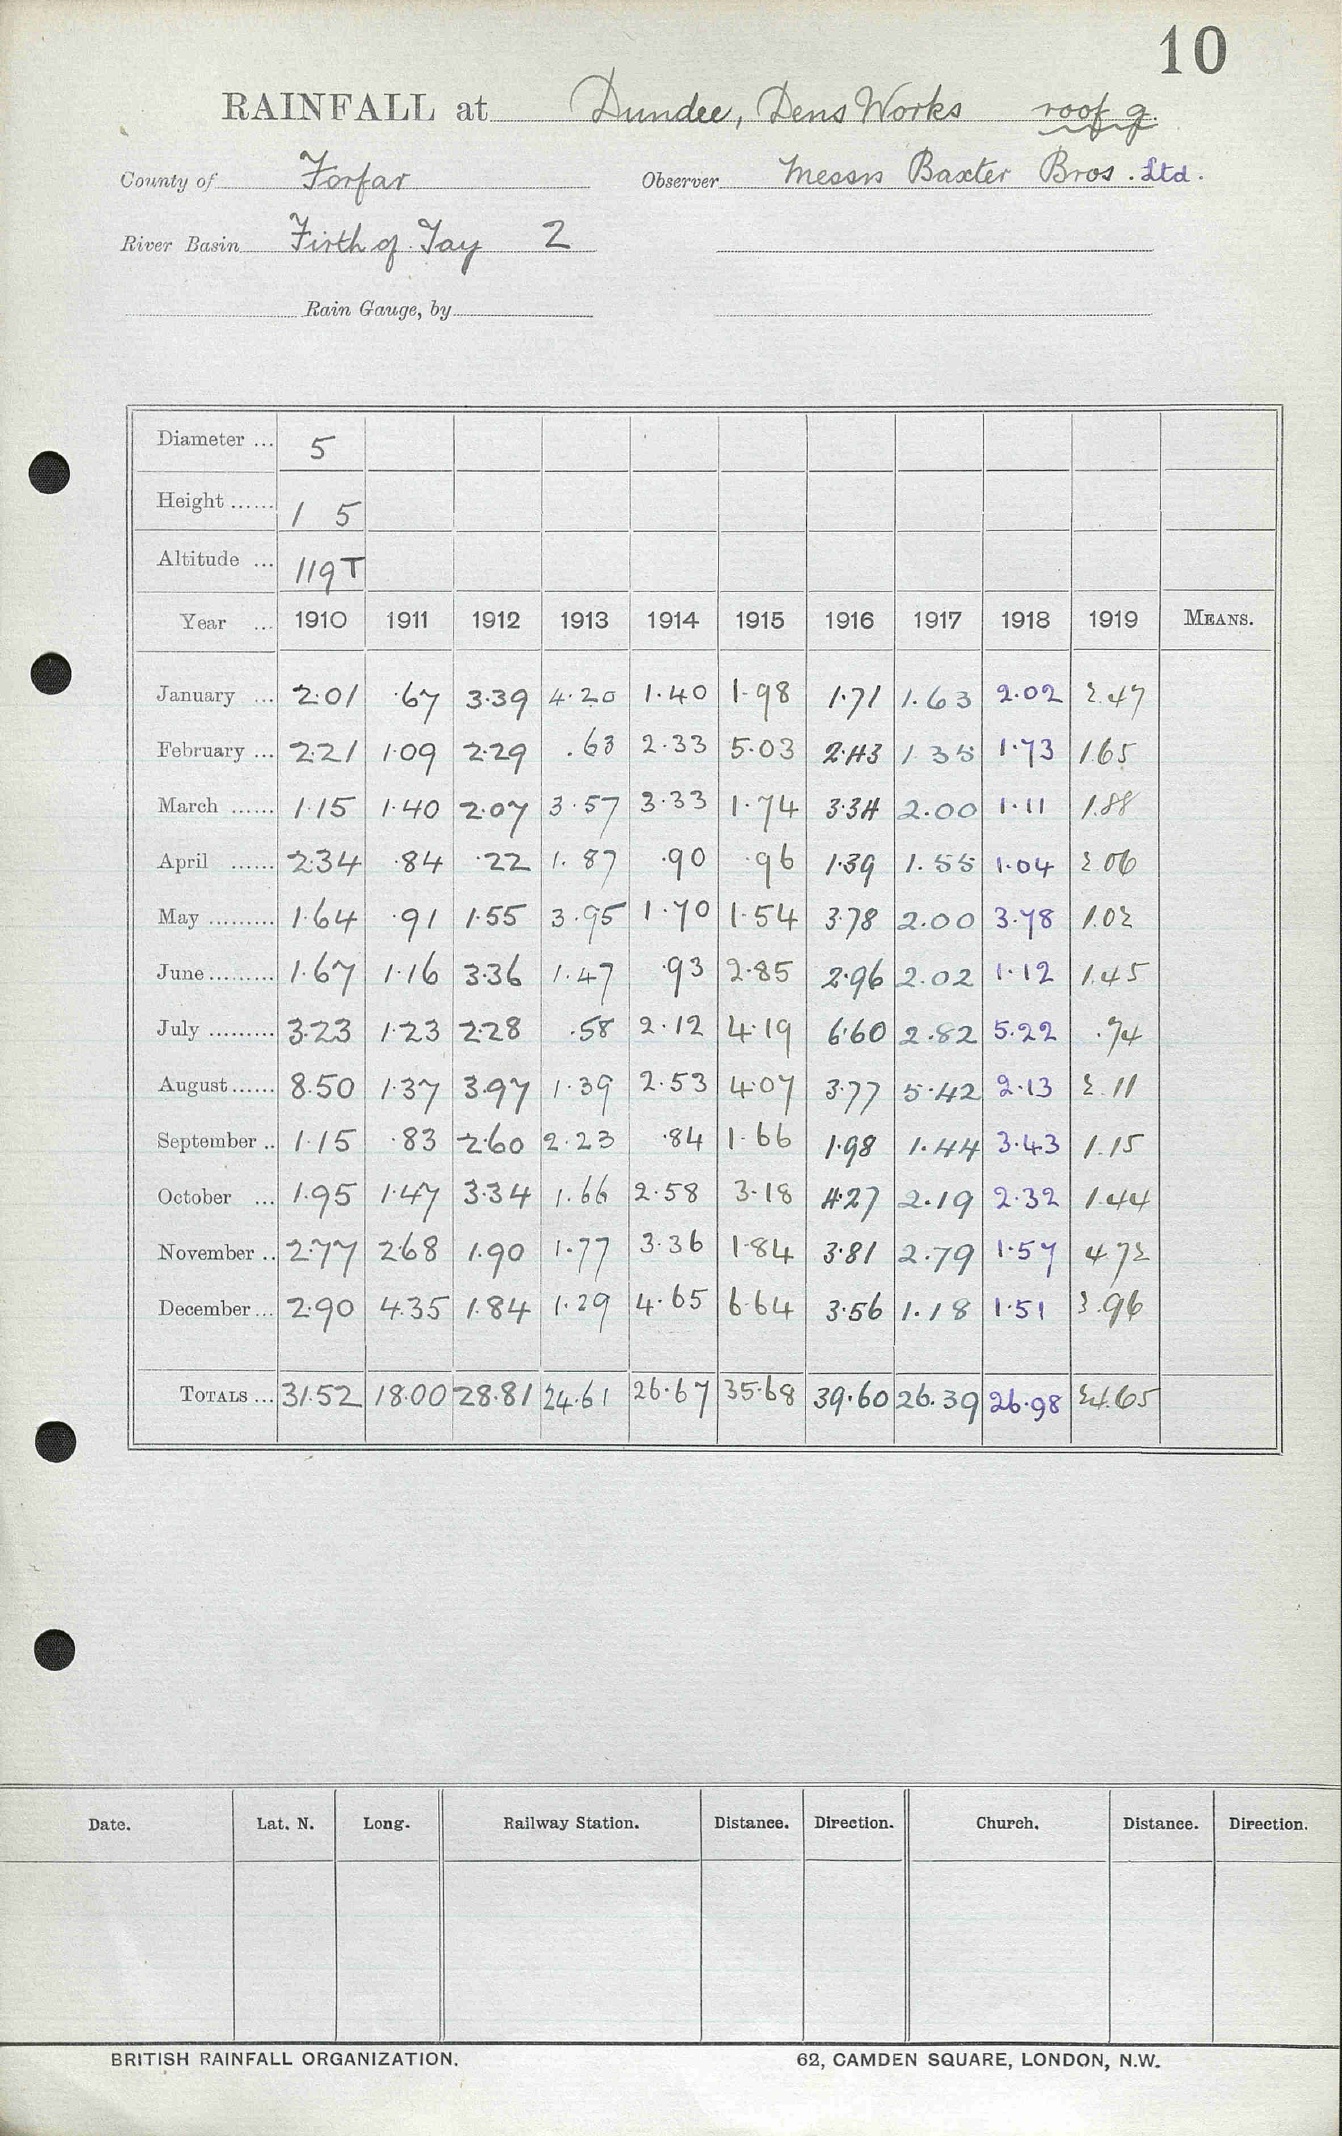 10
RAINFALL at Dundee, Dens Works roof g.
County of Forfar Observer Messrs Baxter Bros. Ltd.
River Basin Firth of Tay 2
Rain Gauge, by
Diameter ... 5
Height ...... 1 5
Altitude ... 119T
Year ... 1910 1911 1912 1913 1914 1915 1916 1917 1918 1919 MEANS.
January ... 2.01 .67 3.39 4.20 1.40 1.98 1.71 1.63 2.02 2.47
February ... 2.21 1.09 2.29 .63 2.33 5.03 2.43 1.35 1.73 1.65
March ...... 1.15 1.40 2.07 3.57 3.33 1.74 3.34 2.00 1.11 1.88
April ...... 2.34 .84 .22 1.87 .90 .96 1.39 1.55 1.04 2.06
May ......... 1.64 .91 1.55 3.95 1.70 1.54 3.78 2.00 3.78 1.02
June ......... 1.67 1.16 3.36 1.47 .93 2.85 2.96 2.02 1.12 1.45
July ......... 3.23 1.23 2.28 .58 2.12 4.19 6.60 2.82 5.22 .74
August ...... 8.50 1.37 3.97 1.39 2.53 4.07 3.77 5.42 2.13 2.11
September .. 1.15 .83 2.60 2.23 .84 1.66 1.98 1.44 3.43 1.15
October ... 1.95 1.47 3.34 1.66 2.58 3.18 4.27 2.19 2.32 1.44
November .. 2.77 2.68 1.90 1.77 3.36 1.84 3.81 2.79 1.57 4 72
December ... 2.90 4.35 1.84 1.29 4.65 6.64 3.56 1.18 1.51 3.96
TOTALS ... 31.52 18.00 28.81 24.61 26.67 35.68 39.60 26.39 26.98 24.65
Date. Lat. N. Long. Railway Station. Distance. Direction. Church. Distance. Direction.
BRITISH RAINFALL ORGANIZATION. 62, CAMDEN SQUARE, LONDON, N.W.